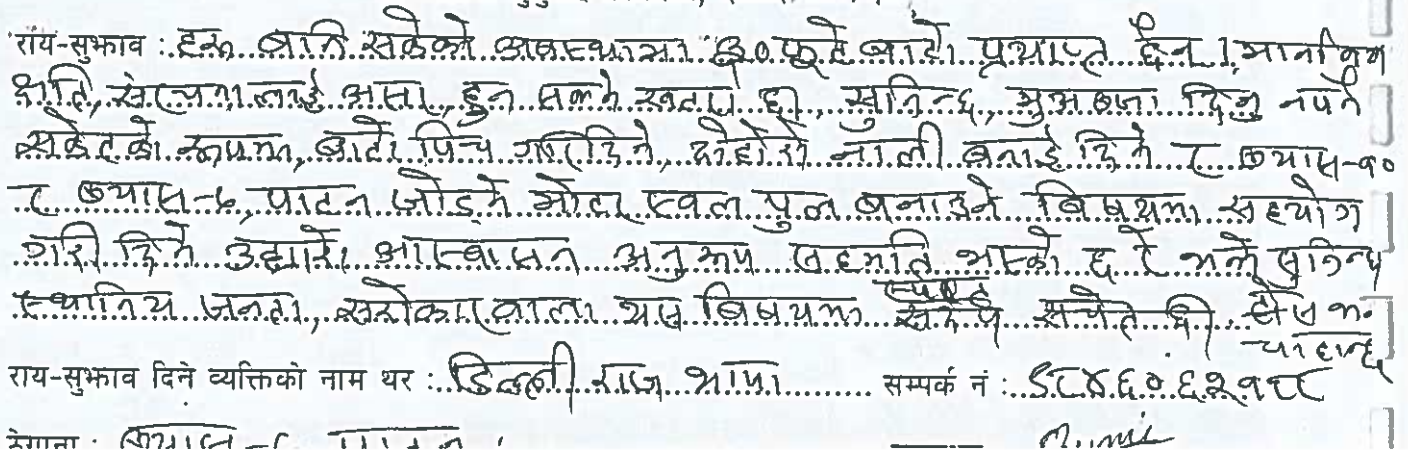 राय-सुझाव : हाल बनि सकेको अवस्थामा ३० फूटे बाटो प्रयाप्त छैन । मानविय
क्षति, संरचनालाई असर, हुन सक्ने खतरा छ । सुनिन्छ, मुअब्जा दिनु नपर्ने
सर्केटको रूपमा, बाटो पिच गरिदिने, दोहोरो नाली बनाई दिने र ब्यास-१०
र ब्यास-६, पाटन जोड्ने मोटर स्वल पुल बनाउने बिषयमा सहयोग
गरी दिने उहाँरो आस्वासन अनुरूप सहमति भएको छ रे भन्ने सुनिन्छ
स्थानिय जनता, सरोकारवाला यस बिषयमा स्पष्ट सचेत छौ
चाहान्छ
राय-सुझाव दिने व्यक्तिको नाम थर : डिल्ली राज थापा सम्पर्क नं : ९८४६०६२११८
ठेगाना : ब्यास पाटन